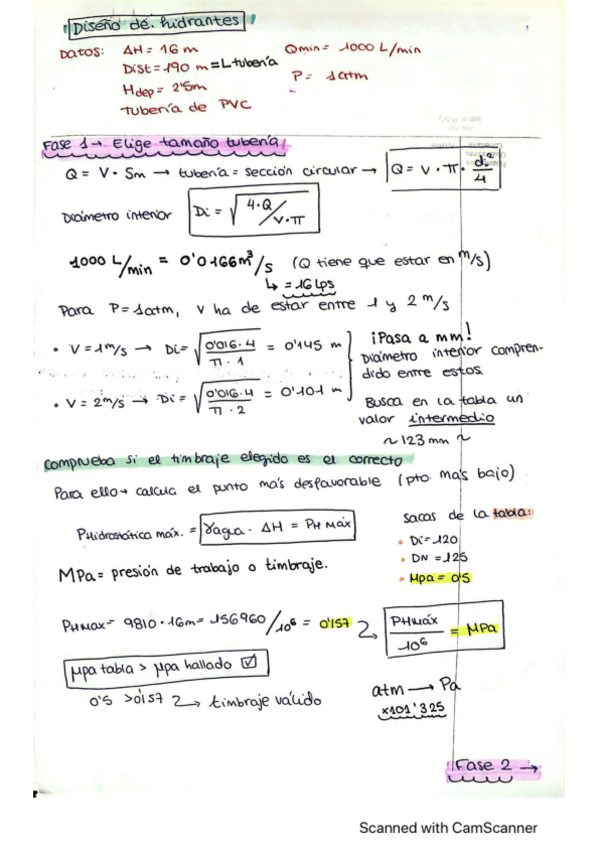 Diseño de hidrantes
DATOS: ΔH = 16 m Qmin = 1000 L/min
Dist = 190 m = L tubería P = 1 atm
Hdep = 2'5m
Tubería de PVC
Fase 1 → Elige tamaño tubería
Q = V · Sm → tubería = sección circular → Q = V · π · di²/4
Diámetro interior Di = √(4·Q/V·π)
1000 L/min = 0'0166 m³/s (Q tiene que estar en m/s)
↳ = 16 lps
Para P = 1 atm, V ha de estar entre 1 y 2 m/s
• V = 1 m/s → Di = √(0'016·4/π·1) = 0'145 m
• V = 2 m/s → Di = √(0'016·4/π·2) = 0'101 m
¡Pasa a mm!
Diámetro interior compren-
dido entre estos.
Busca en la tabla un
valor intermedio
~ 123 mm ~
Comprueba si el timbraje elegido es el correcto
Para ello → calcula el punto más desfavorable (pto. más bajo)
PHidrostática máx. = γagua · ΔH = PH máx
Sacas de la tabla:
• Di = 120
• DN = 125
• Mpa = 0'5
MPa = presión de trabajo o timbraje.
PHmax = 9810 · 16m = 156960/10⁶ = 0'157 PHmáx/10⁶ = MPa
Mpa tabla > Mpa hallado ☑
0'5 > 0'157 → timbraje válido
atm → Pa
×101'325
Fase 2 →
Scanned with CamScanner